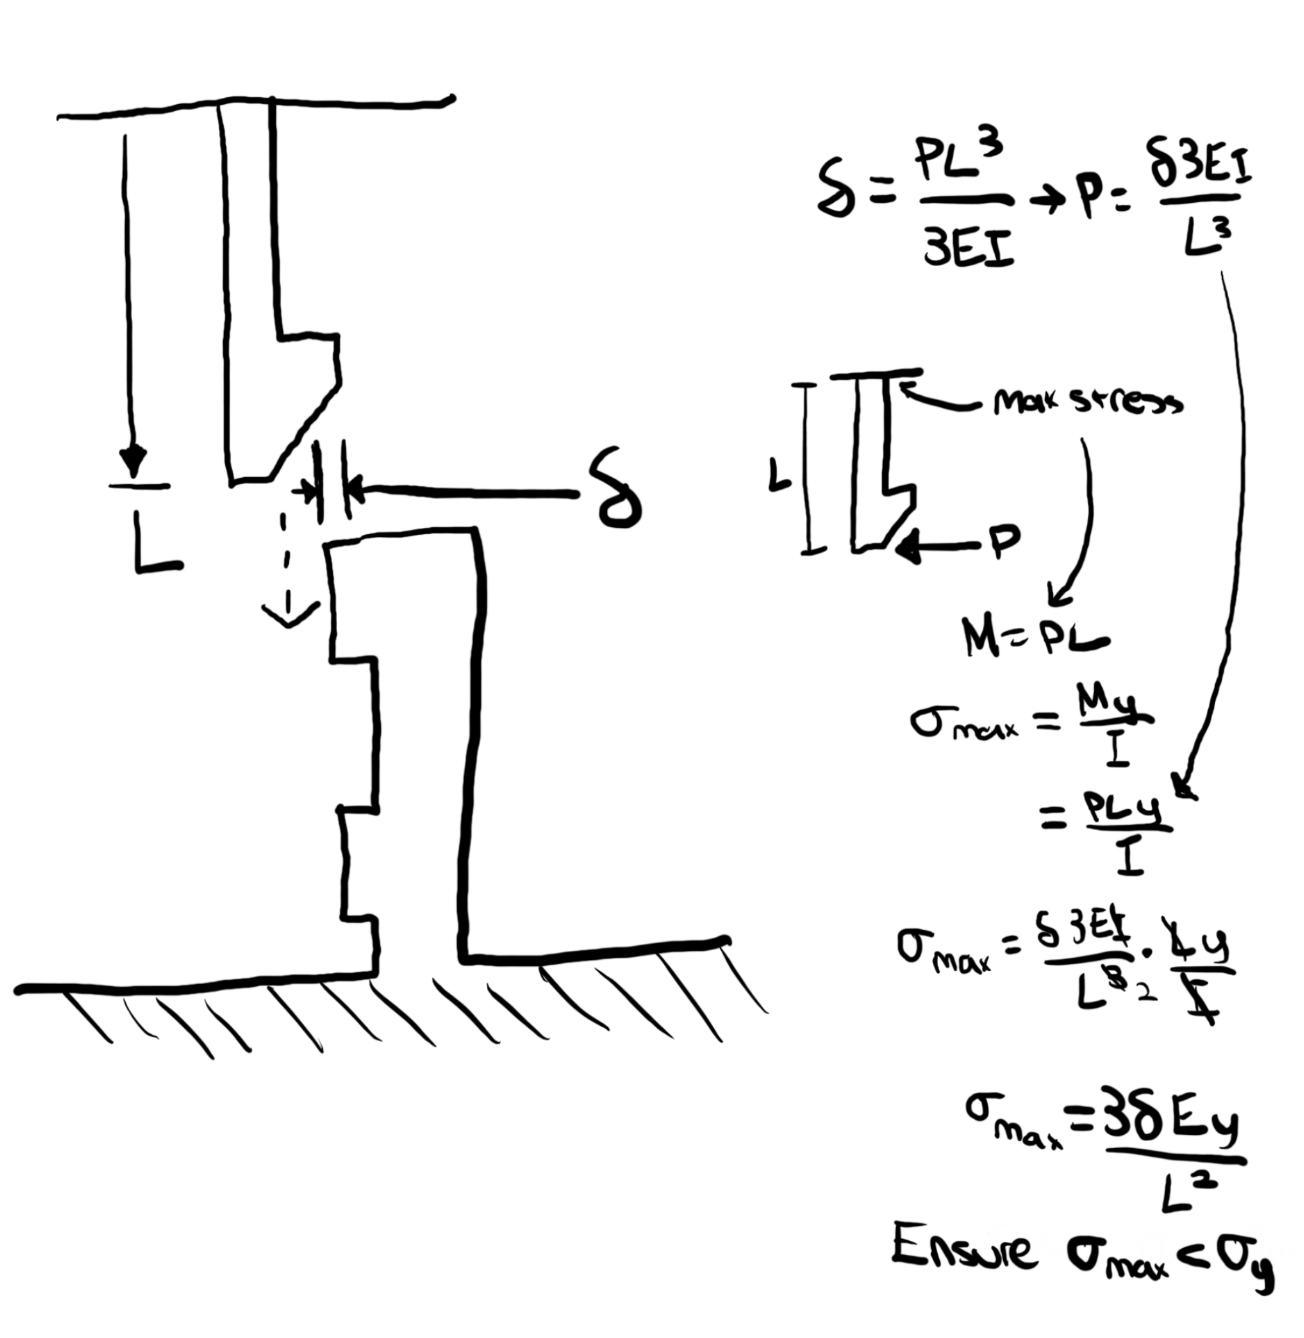 L
δ
δ = PL³/3EI → P = δ3EI/L³
Max stress
L
P
M = PL
σmax = My/I
= PLy/I
σmax = δ3EI/L³2 · Ly/I
σmax = 3δEy/L²
Ensure σmax < σy